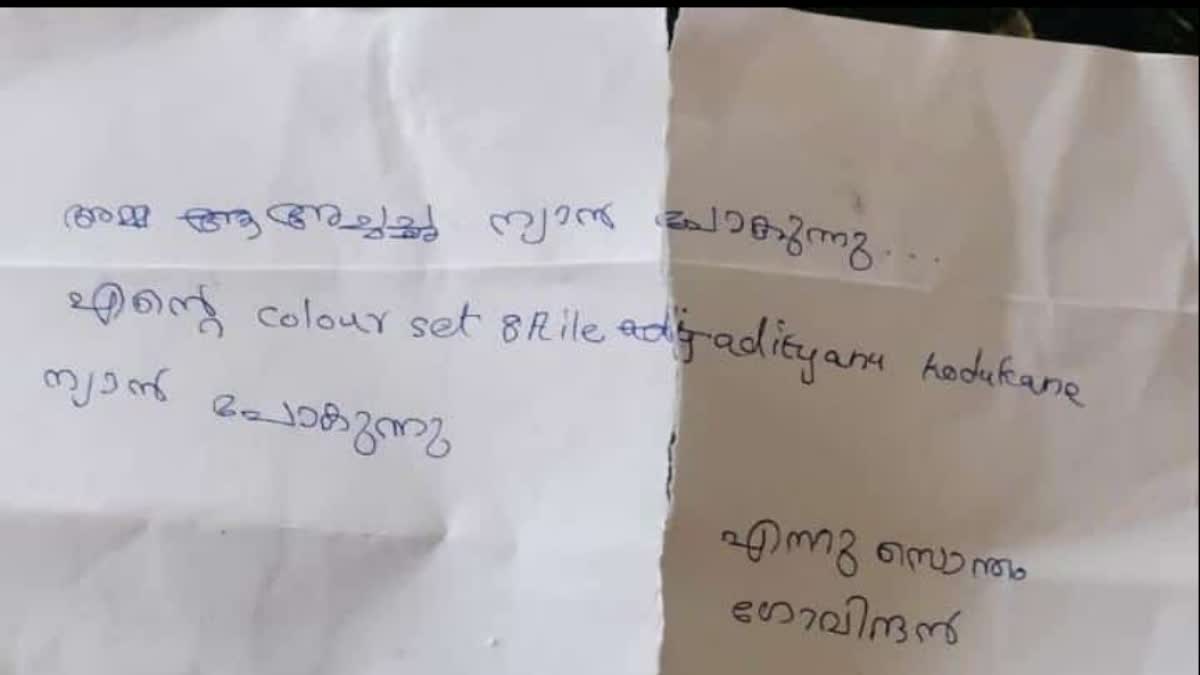 അമ്മ അച്ഛച്ച ന്യാൻ പോകുന്നു...
എന്റെ colour set 8A ile adityanu kodukane
ന്യാൻ പോകുന്നു
എന്നു സൊന്തം
ഗോവിന്ദൻ